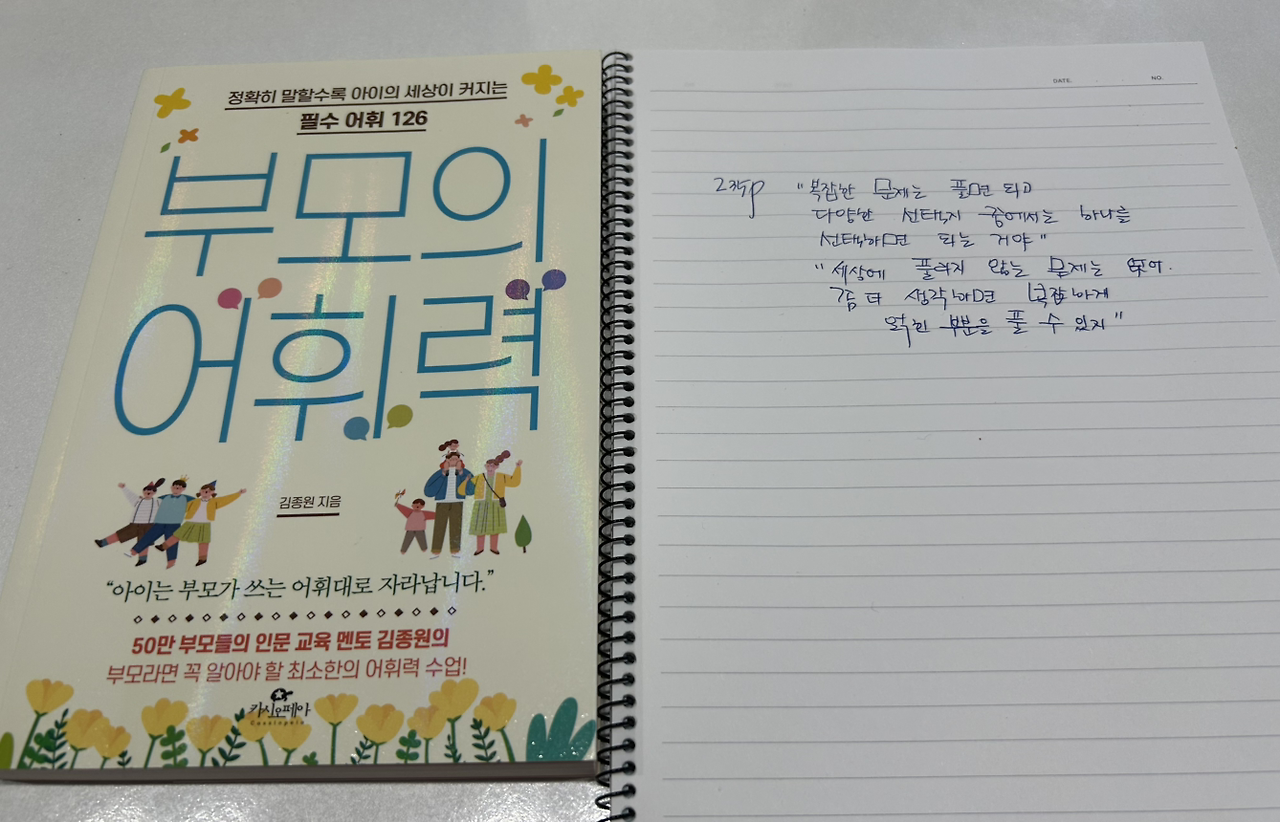 정확히 말할수록 아이의 세상이 커지는
필수 어휘 126
부모의
어휘력
김종원 지음
“아이는 부모가 쓰는 어휘대로 자라납니다.”
50만 부모들의 인문 교육 멘토 김종원의
부모라면 꼭 알아야 할 최소한의 어휘력 수업!
카시오페아
Cassiopeia
DATE. NO.
"복잡한 문제는 풀면 되고
다양한 선택지 중에서는 하나를
선택하면 되는 거야"
"세상에 풀리지 않는 문제는 없어.
좀 더 생각하면 복잡하게
얽힌 부분을 풀 수 있지"